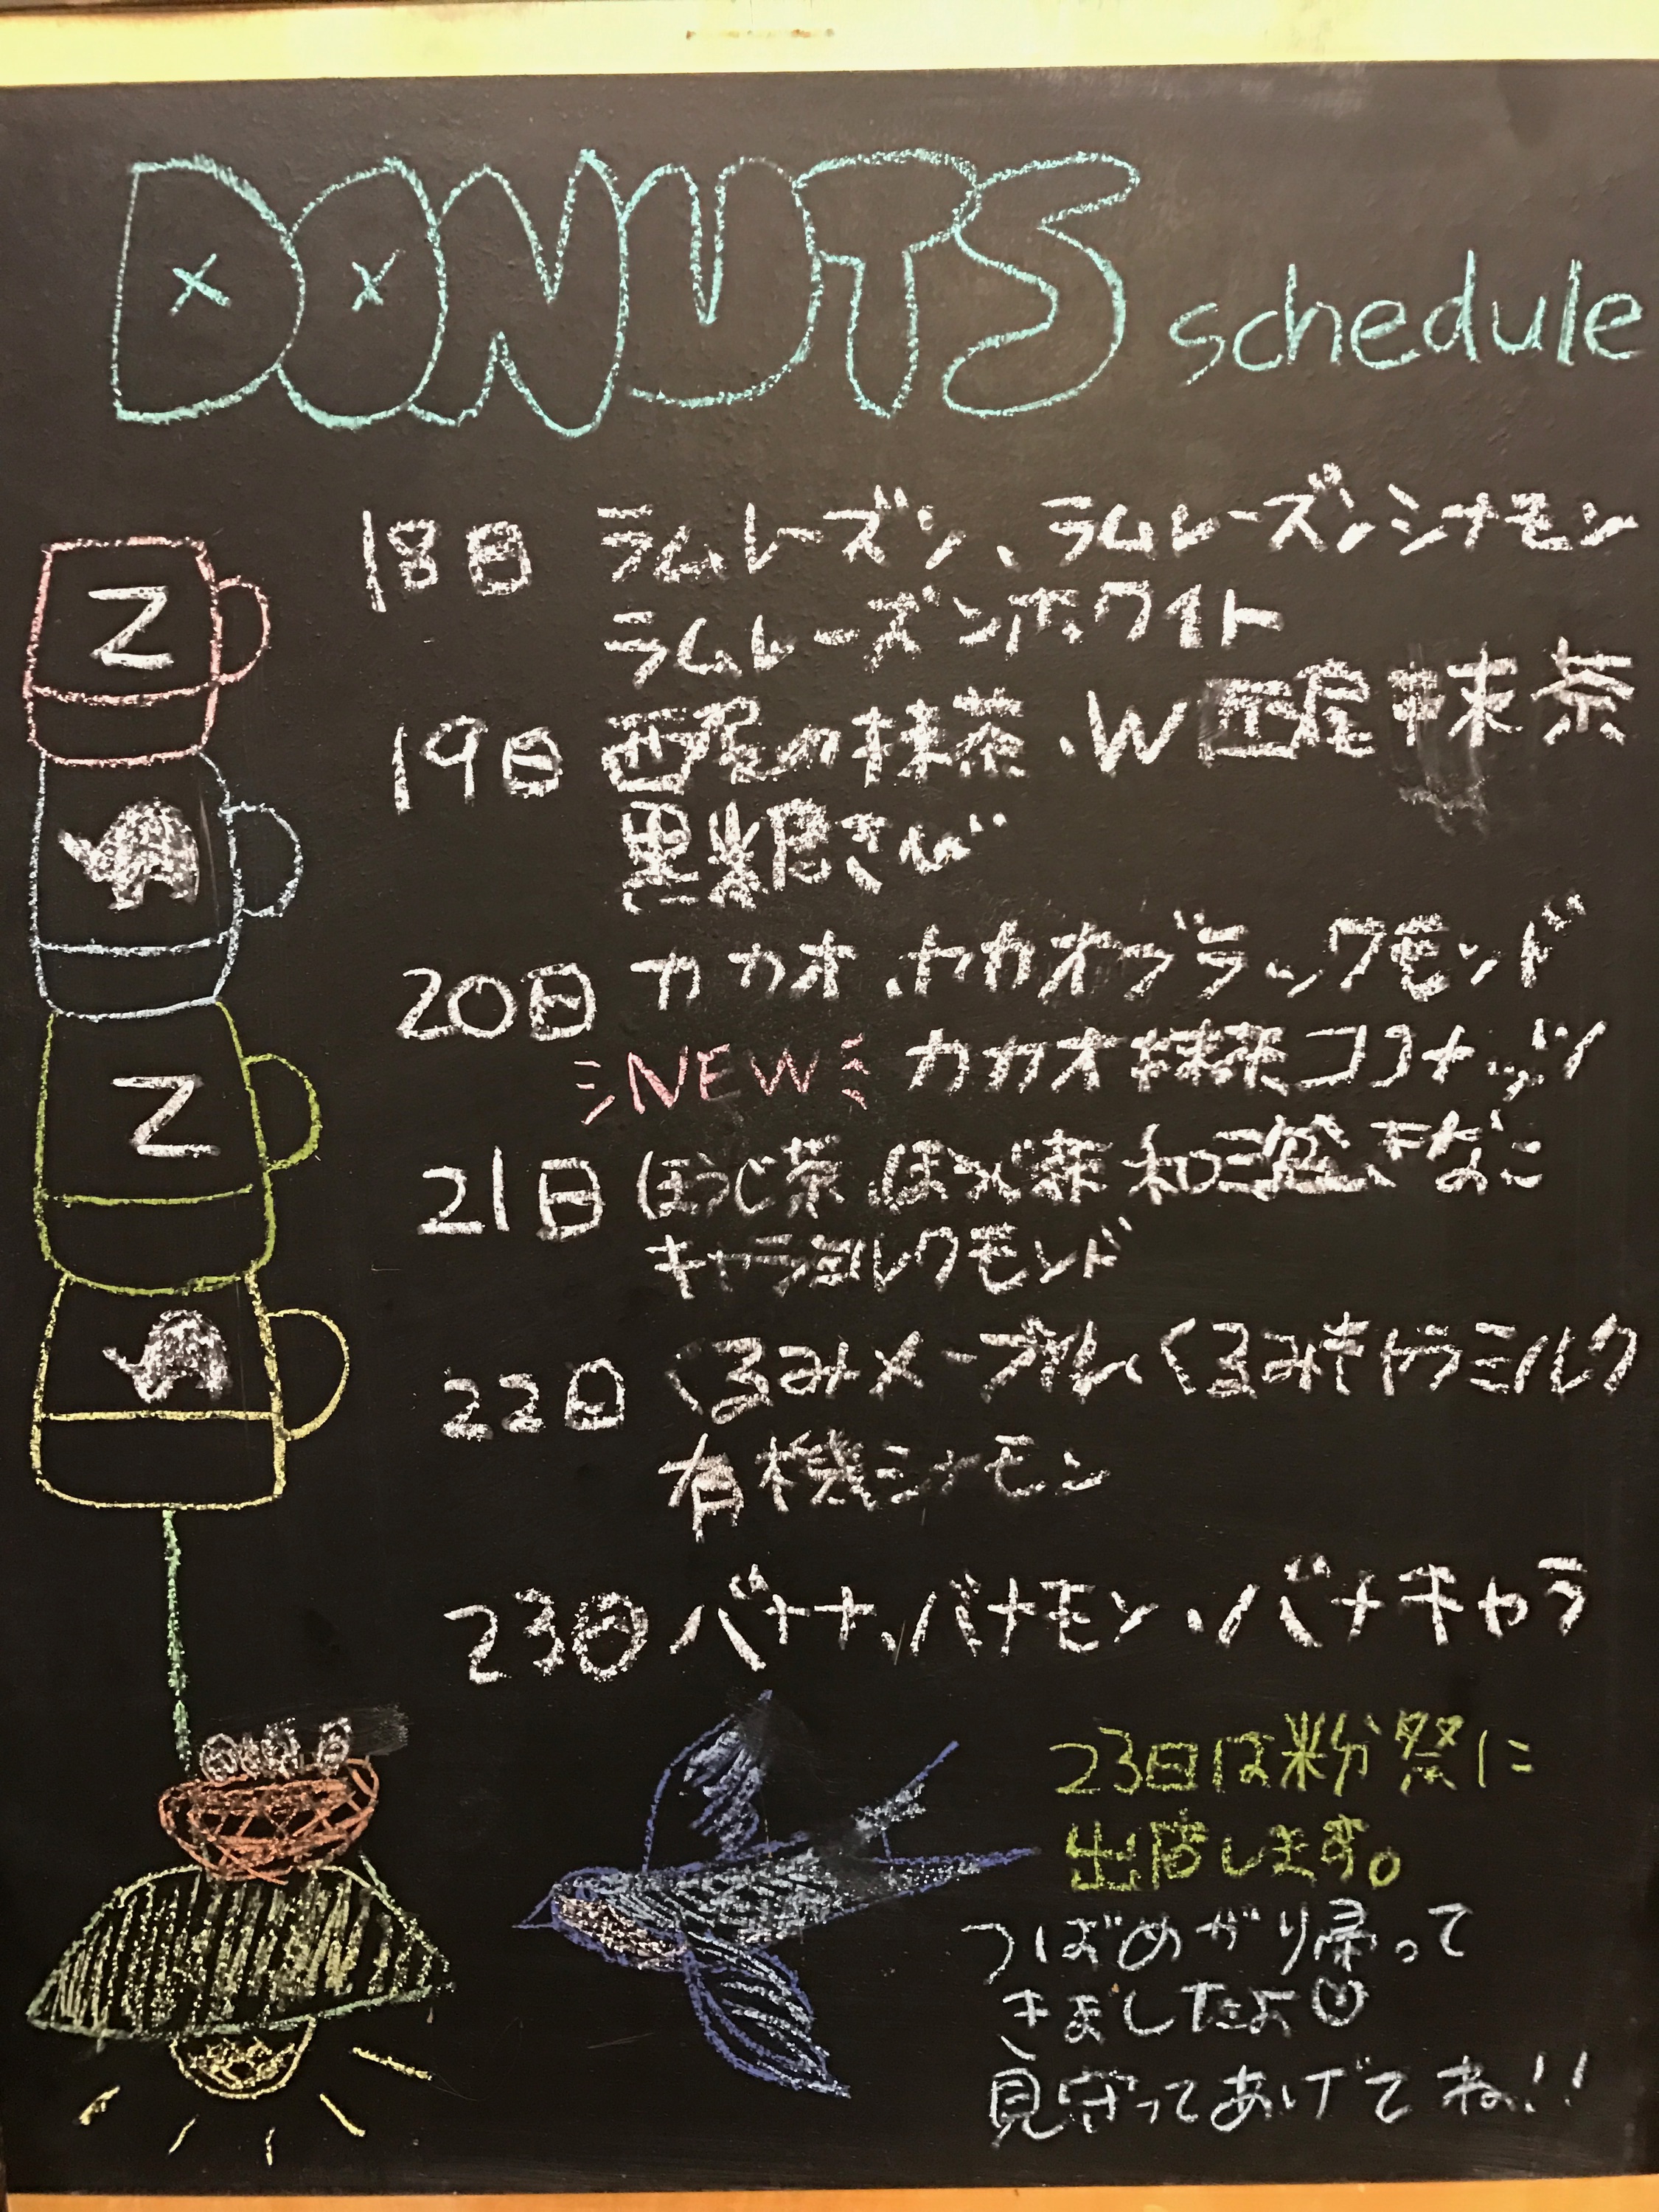 DONUTS schedule
18日 ラムレーズン、ラムレーズンシナモン
ラムレーズンホワイト
19日 西尾の抹茶、W西尾抹茶
黒糖きび
20日 カカオ、カカオブラックモンド
NEW カカオ抹茶ココナッツ
21日 ほうじ茶、ほうじ茶和三盆きなこ
キャラミルクモンド
22日 くるみメープル、くるみキャラミルク
有機シナモン
23日 バナナ、バナモン、バナキャラ
23日は粉祭に
出店します。
つばめがり帰って
きましたよ
見守ってあげてね!!
Z
Z